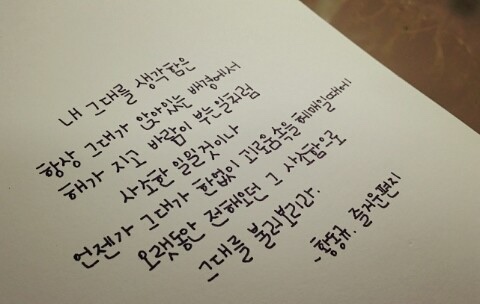 내 그대를 생각함은
항상 그대가 앉아있는 배경에서
해가 지고 바람이 부는 일처럼
사소한 일일것이나
언젠가 그대가 한없이 괴로움속을 헤매일때에
오랫동안 전해오던 그 사소함으로
그대를 불러보리라.
-황동규. 즐거운편지